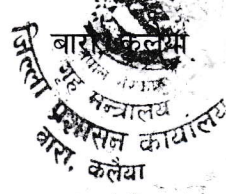 बारा, कलैया
नेपाल सरकार
गृह मन्त्रालय
जिल्ला प्रशासन कार्यालय
बारा, कलैया